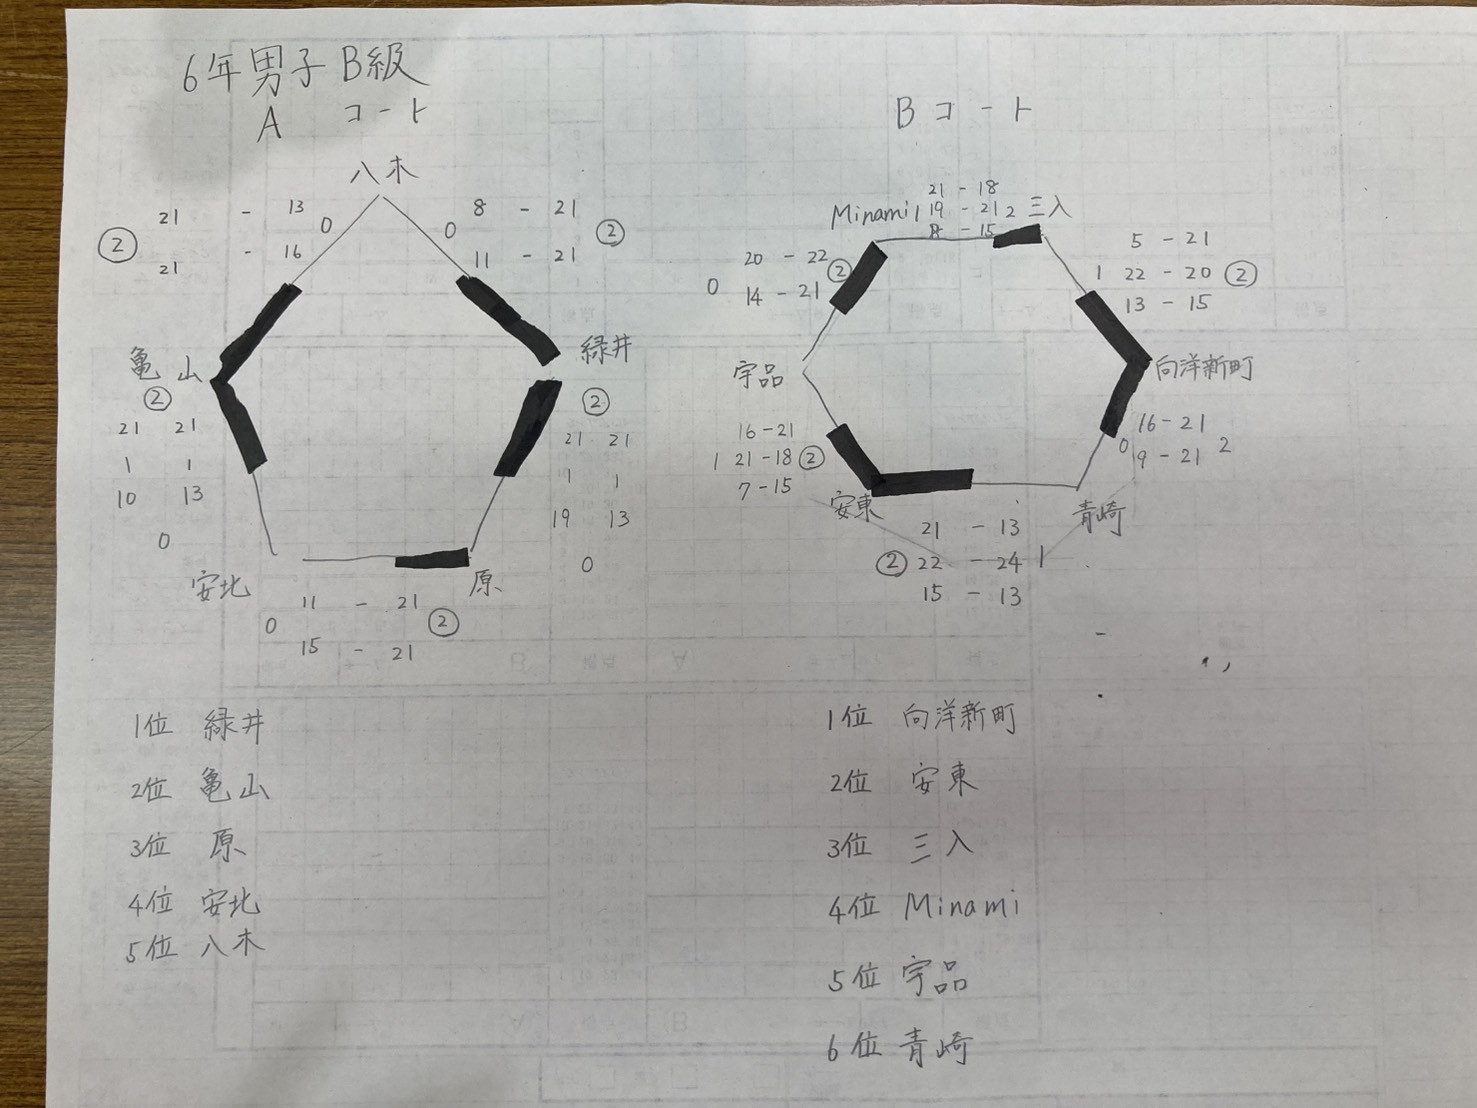 6年男子 B級
A コート
八木
21 - 13
② 0
21 - 16
8 - 21
0 ②
11 - 21
亀山
②
21 21
1 1
10 13
0
緑井
②
21 21
1 1
19 13
0
安北
原
11 - 21
0 ②
15 - 21
1位 緑井
2位 亀山
3位 原
4位 安北
5位 八木
B コート
21 - 18
Minami 1 19 - 21 2 三入
- 15
20 - 22
0 ②
14 - 21
5 - 21
1 22 - 20 ②
13 - 15
宇品
向洋新町
16 - 21
1 21 - 18 ②
7 - 15
16 - 21
0 2
9 - 21
安東
青崎
21 - 13
② 22 - 24 1
15 - 13
1位 向洋新町
2位 安東
3位 三入
4位 Minami
5位 宇品
6位 青崎